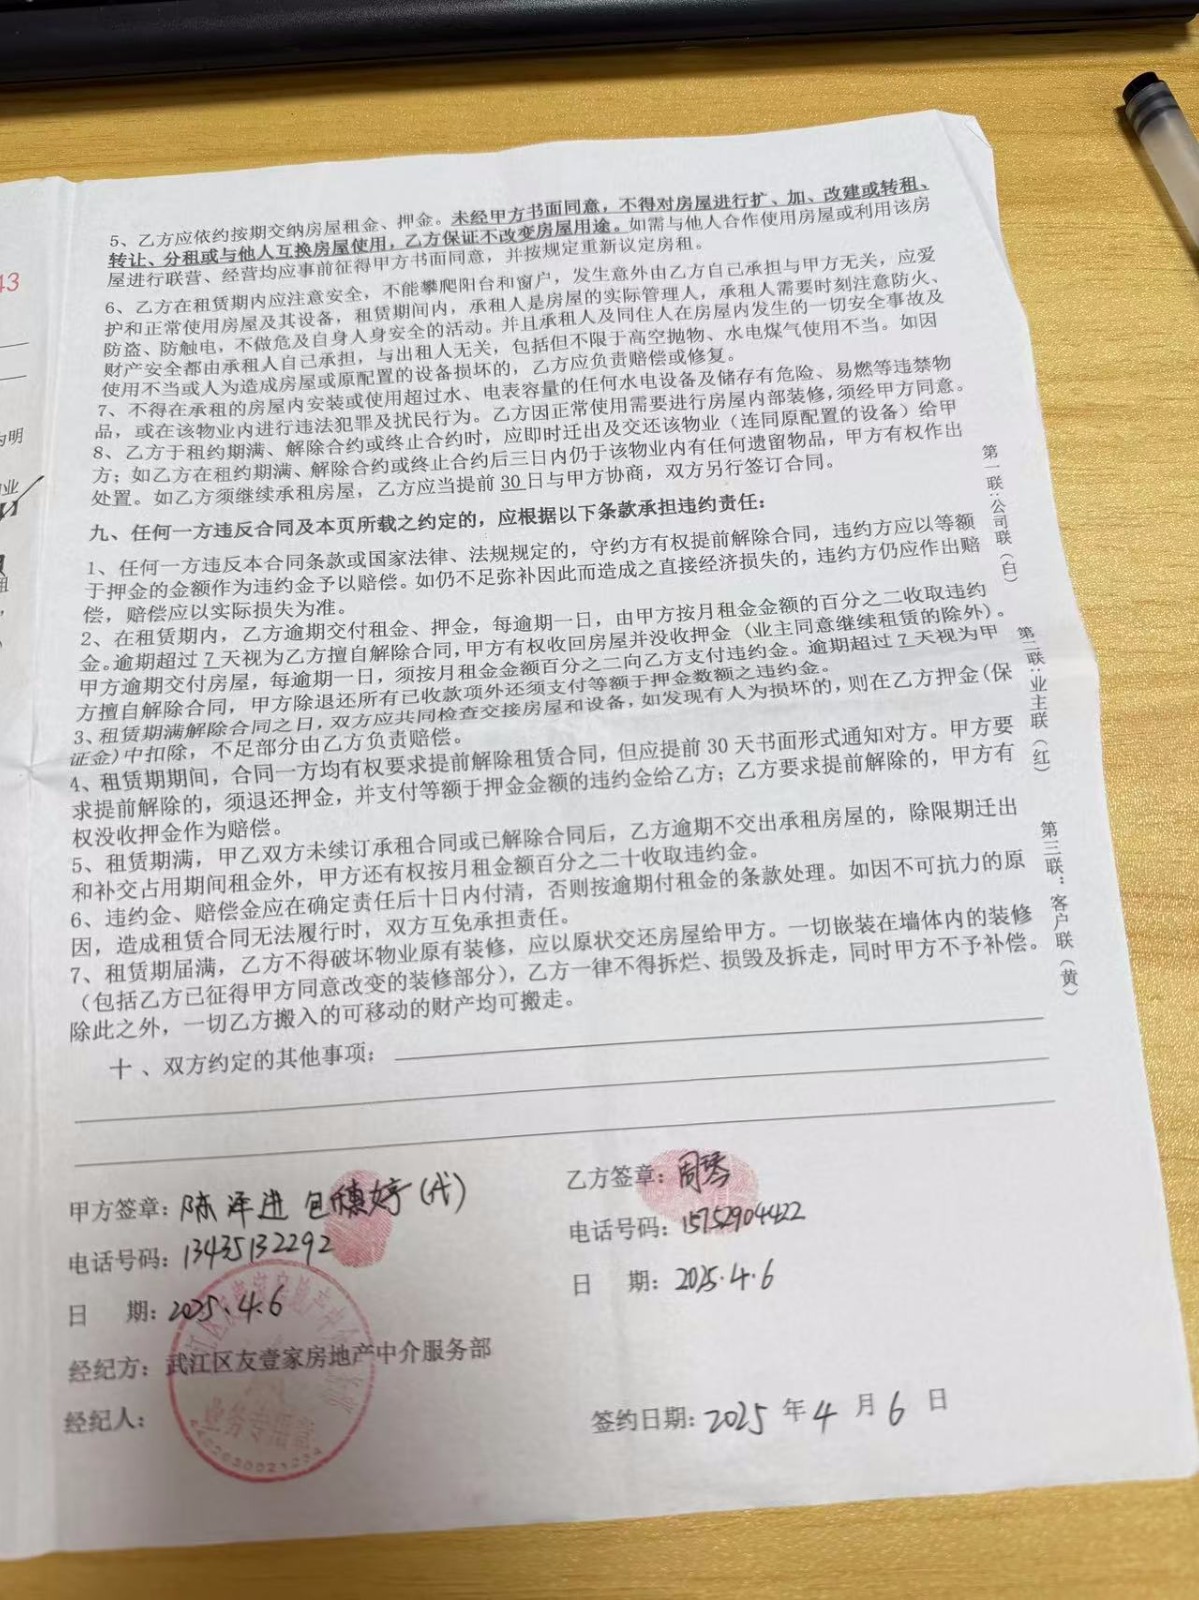 43
为明
业
组
5、乙方应依约按期交纳房屋租金、押金。未经甲方书面同意，不得对房屋进行扩、加、改建或转租、
转让、分租或与他人互换房屋使用，乙方保证不改变房屋用途。如需与他人合作使用房屋或利用该房
屋进行联营、经营均应事前征得甲方书面同意，并按规定重新议定房租。
6、乙方在租赁期内应注意安全，不能攀爬阳台和窗户，发生意外由乙方自己承担与甲方无关，应爱
护和正常使用房屋及其设备，租赁期间内，承租人是房屋的实际管理人，承租人需要时刻注意防火、
防盗、防触电，不做危及自身人身安全的活动。并且承租人及同住人在房屋内发生的一切安全事故及
财产安全都由承租人自己承担，与出租人无关，包括但不限于高空抛物、水电煤气使用不当。如因
使用不当或人为造成房屋或原配置的设备损坏的，乙方应负责赔偿或修复。
7、不得在承租的房屋内安装或使用超过水、电表容量的任何水电设备及储存有危险、易燃等违禁物
品，或在该物业内进行违法犯罪及扰民行为。乙方因正常使用需要进行房屋内部装修，须经甲方同意。
8、乙方于租约期满、解除合约或终止合约时，应即时迁出及交还该物业（连同原配置的设备）给甲
方；如乙方在租约期满、解除合约或终止合约后三日内仍于该物业内有任何遗留物品，甲方有权作出
处置。如乙方须继续承租房屋，乙方应当提前30日与甲方协商，双方另行签订合同。
九、任何一方违反合同及本页所载之约定的，应根据以下条款承担违约责任：
1、任何一方违反本合同条款或国家法律、法规规定的，守约方有权提前解除合同，违约方应以等额
于押金的金额作为违约金予以赔偿。如仍不足弥补因此而造成之直接经济损失的，违约方仍应作出赔
偿，赔偿应以实际损失为准。
2、在租赁期内，乙方逾期交付租金、押金，每逾期一日，由甲方按月租金金额的百分之二收取违约
金。逾期超过7天视为乙方擅自解除合同，甲方有权收回房屋并没收押金（业主同意继续租赁的除外）。
甲方逾期交付房屋，每逾期一日，须按月租金金额百分之二向乙方支付违约金。逾期超过7天视为甲
方擅自解除合同，甲方除退还所有已收款项外还须支付等额于押金数额之违约金。
3、租赁期满解除合同之日，双方应共同检查交接房屋和设备，如发现有人为损坏的，则在乙方押金（保
证金）中扣除，不足部分由乙方负责赔偿。
4、租赁期期间，合同一方均有权要求提前解除租赁合同，但应提前30天书面形式通知对方。甲方要
求提前解除的，须退还押金，并支付等额于押金金额的违约金给乙方；乙方要求提前解除的，甲方有
权没收押金作为赔偿。
5、租赁期满，甲乙双方未续订承租合同或已解除合同后，乙方逾期不交出承租房屋的，除限期迁出
和补交占用期间租金外，甲方还有权按月租金额百分之二十收取违约金。
6、违约金、赔偿金应在确定责任后十日内付清，否则按逾期付租金的条款处理。如因不可抗力的原
因，造成租赁合同无法履行时，双方互免承担责任。
7、租赁期届满，乙方不得破坏物业原有装修，应以原状交还房屋给甲方。一切嵌装在墙体内的装修
（包括乙方已征得甲方同意改变的装修部分），乙方一律不得拆烂、损毁及拆走，同时甲方不予补偿。
除此之外，一切乙方搬入的可移动的财产均可搬走。
十、双方约定的其他事项：
第一联：公司联（白）
第二联：业主联（红）
第三联：客户联（黄）
甲方签章：陈泽进 包穗婷（代）
电话号码：13435132292
日 期：2025.4.6
经纪方：武江区友壹家房地产中介服务部
经纪人：
业务专用章
乙方签章：周琴
电话号码：15752904422
日 期：2025.4.6
签约日期：2025 年 4 月 6 日